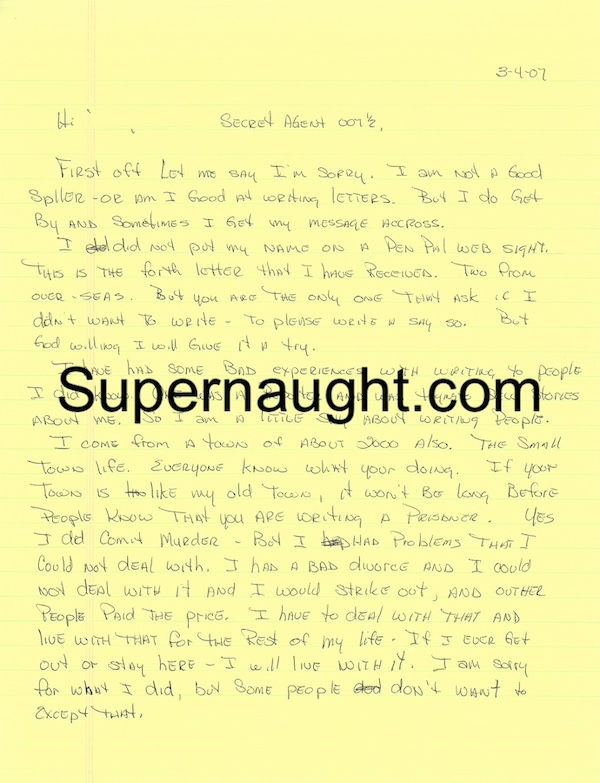 3-4-07
Hi , Secret Agent 007½,
First off Let me say I'm sorry. I am not a good
Spller - or am I good at writing letters. But I do get
By and sometimes I get my message accross.
I did not put my name on a Pen Pal web sight.
This is the forth letter that I have received. Two from
over-seas. But you are the only one that ask if I
didn't want to write - to please write n say so. But
God willing I will give it a try.
I have had some bad experiences with writing to people
I did know. One was a reporter and was
stories
Supernaught.com
about me. So I am a little about writing people.
I come from a town of about 2000 also. The small
town life. Everyone know what your doing. If your
town is like my old town, it won't be long before
people know that you are writing a prisoner. Yes
I did comit murder - But I had problems that I
could not deal with. I had a bad divorce and I could
not deal with it and I would strike out, and outher
people paid the price. I have to deal with that and
live with that for the rest of my life. If I ever get
out or stay here - I will live with it. I am sorry
for what I did, but some people don't want to
except that.